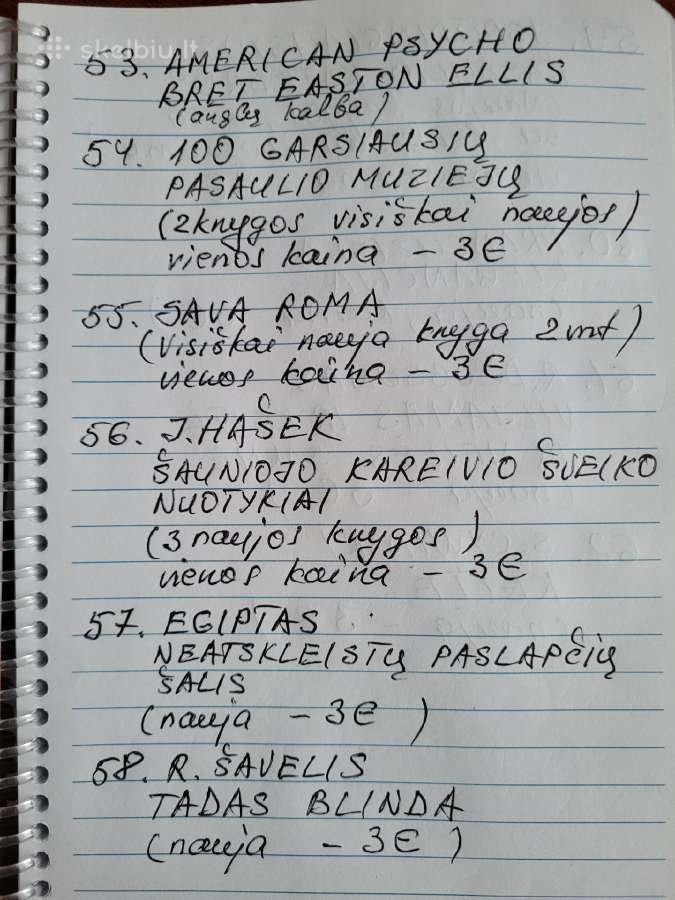 skelbiu.lt
53. AMERICAN PSYCHO
BRET EASTON ELLIS
(anglų kalba)
54. 100 GARSIAUSIŲ
PASAULIO MUZIEJŲ
(2 knygos visiškai naujos)
vienos kaina - 3€
55. SAVA ROMA
(visiškai nauja knyga 2 vnt)
vienos kaina - 3€
56. J. HAŠEK
ŠAUNIOJO KAREIVIO ŠVEIKO
NUOTYKIAI
(3 naujos knygos)
vienos kaina - 3€
57. EGIPTAS
NEATSKLEISTŲ PASLAPČIŲ
ŠALIS
(nauja - 3€ )
58. R. ŠAVELIS
TADAS BLINDA
(nauja - 3€ )